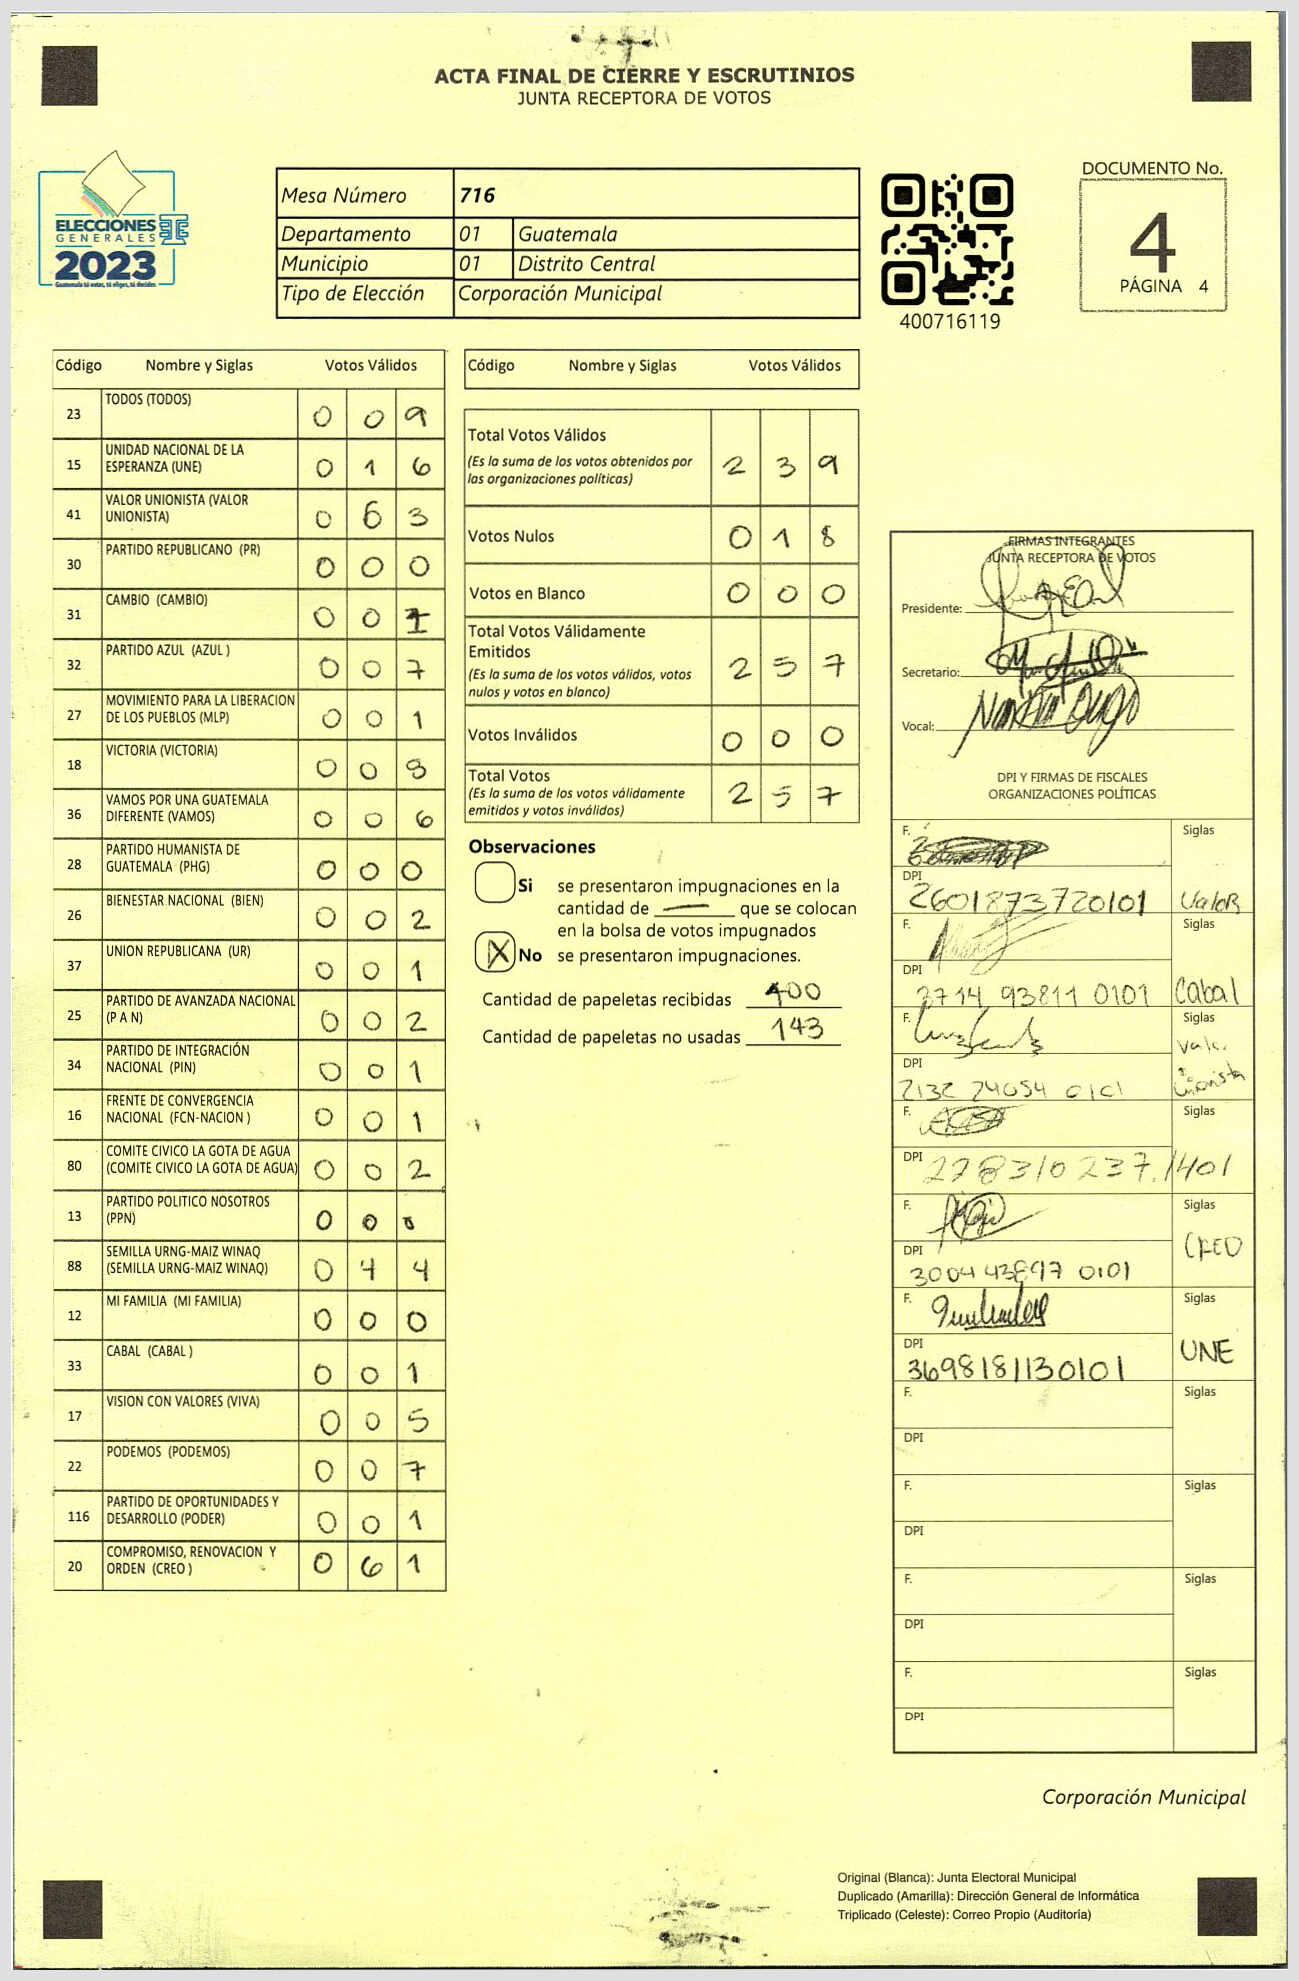 ACTA FINAL DE CIERRE Y ESCRUTINIOS
JUNTA RECEPTORA DE VOTOS
ELECCIONES
GENERALES
2023
Guatemala tú votas, tú eliges, tú decides
Mesa Número 716
Departamento 01 Guatemala
Municipio 01 Distrito Central
Tipo de Elección Corporación Municipal
400716119
DOCUMENTO No.
4
PÁGINA 4
Código Nombre y Siglas Votos Válidos
23 TODOS (TODOS) 0 0 9
15 UNIDAD NACIONAL DE LA
ESPERANZA (UNE) 0 1 6
41 VALOR UNIONISTA (VALOR
UNIONISTA) 0 6 3
30 PARTIDO REPUBLICANO (PR) 0 0 0
31 CAMBIO (CAMBIO) 0 0 1
32 PARTIDO AZUL (AZUL ) 0 0 7
27 MOVIMIENTO PARA LA LIBERACION
DE LOS PUEBLOS (MLP) 0 0 1
18 VICTORIA (VICTORIA) 0 0 8
36 VAMOS POR UNA GUATEMALA
DIFERENTE (VAMOS) 0 0 6
28 PARTIDO HUMANISTA DE
GUATEMALA (PHG) 0 0 0
26 BIENESTAR NACIONAL (BIEN) 0 0 2
37 UNION REPUBLICANA (UR) 0 0 1
25 PARTIDO DE AVANZADA NACIONAL
(P A N) 0 0 2
34 PARTIDO DE INTEGRACIÓN
NACIONAL (PIN) 0 0 1
16 FRENTE DE CONVERGENCIA
NACIONAL (FCN-NACION ) 0 0 1
80 COMITE CIVICO LA GOTA DE AGUA
(COMITE CIVICO LA GOTA DE AGUA) 0 0 2
13 PARTIDO POLITICO NOSOTROS
(PPN) 0 0 0
88 SEMILLA URNG-MAIZ WINAQ
(SEMILLA URNG-MAIZ WINAQ) 0 4 4
12 MI FAMILIA (MI FAMILIA) 0 0 0
33 CABAL (CABAL ) 0 0 1
17 VISION CON VALORES (VIVA) 0 0 5
22 PODEMOS (PODEMOS) 0 0 7
116 PARTIDO DE OPORTUNIDADES Y
DESARROLLO (PODER) 0 0 1
20 COMPROMISO, RENOVACION Y
ORDEN (CREO ) 0 6 1
Código Nombre y Siglas Votos Válidos
Total Votos Válidos
(Es la suma de los votos obtenidos por
las organizaciones políticas) 2 3 9
Votos Nulos 0 1 8
Votos en Blanco 0 0 0
Total Votos Válidamente
Emitidos
(Es la suma de los votos válidos, votos
nulos y votos en blanco) 2 5 7
Votos Inválidos 0 0 0
Total Votos
(Es la suma de los votos válidamente
emitidos y votos inválidos) 2 5 7
Observaciones
Si se presentaron impugnaciones en la
cantidad de — que se colocan
en la bolsa de votos impugnados
X No se presentaron impugnaciones.
Cantidad de papeletas recibidas 400
Cantidad de papeletas no usadas 143
FIRMAS INTEGRANTES
JUNTA RECEPTORA DE VOTOS
Presidente:
Secretario:
Vocal:
DPI Y FIRMAS DE FISCALES
ORGANIZACIONES POLÍTICAS
F. Siglas
DPI 2601873720101 Valor
F. Siglas
DPI 3714 93811 0101 Cabal
F. Siglas
DPI 2132 24054 0101 Valor Unionista
F. Siglas
DPI 228310237.1401
F. Siglas
DPI 3004 43897 0101 CREO
F. Siglas
DPI 3698181130101 UNE
F. Siglas
DPI
F. Siglas
DPI
F. Siglas
DPI
F. Siglas
DPI
Corporación Municipal
Original (Blanca): Junta Electoral Municipal
Duplicado (Amarilla): Dirección General de Informática
Triplicado (Celeste): Correo Propio (Auditoría)